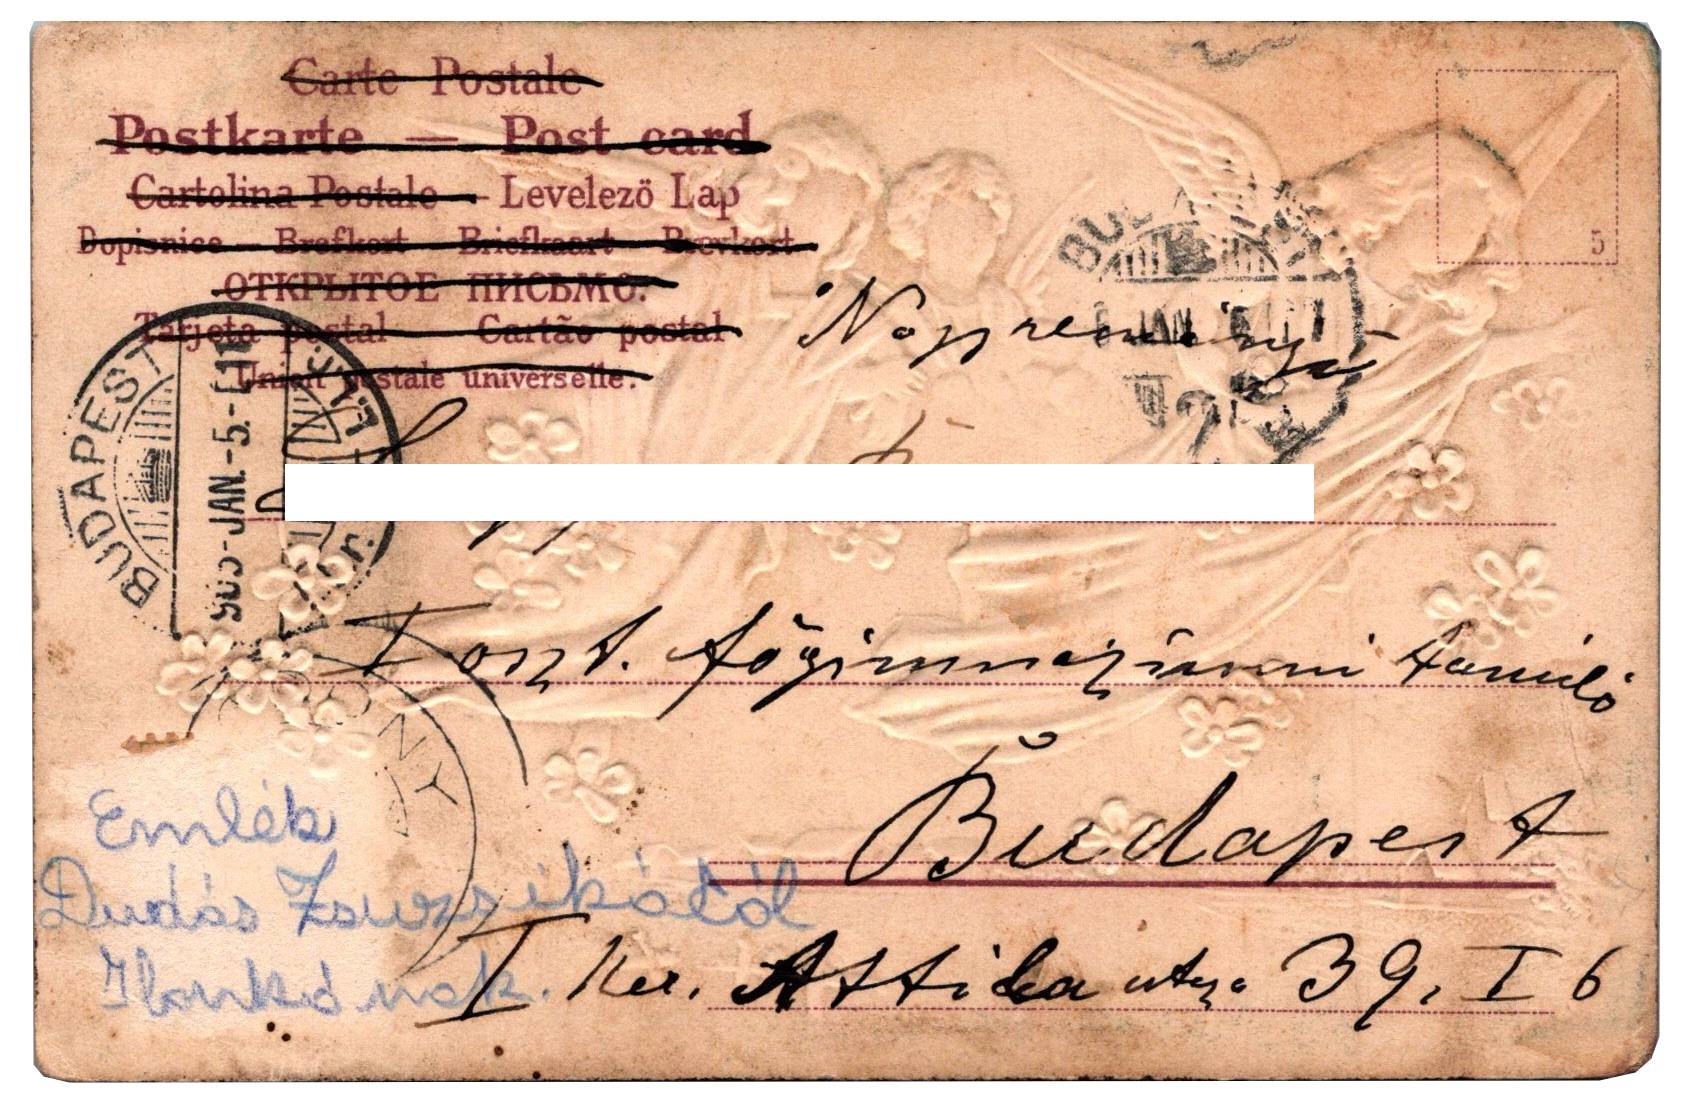 Carte Postale
Postkarte — Post card
Cartolina Postale — Levelezö Lap
Dopisnice — Brefkort Briefkaart Brevkort
ОТКРЫТОЕ ПИСЬМО.
Tarjeta postal Cartão postal
Union postale universelle.
5
BUDAPEST
905-JAN.-5.
BUDAPEST
JAN
Nagyreményű
I oszt. főgimnáziumi tanuló
Budapest
I Ker. Attila utza 39. I 6
Emlék
Dudás Zsuzsikától
Ilonkának.